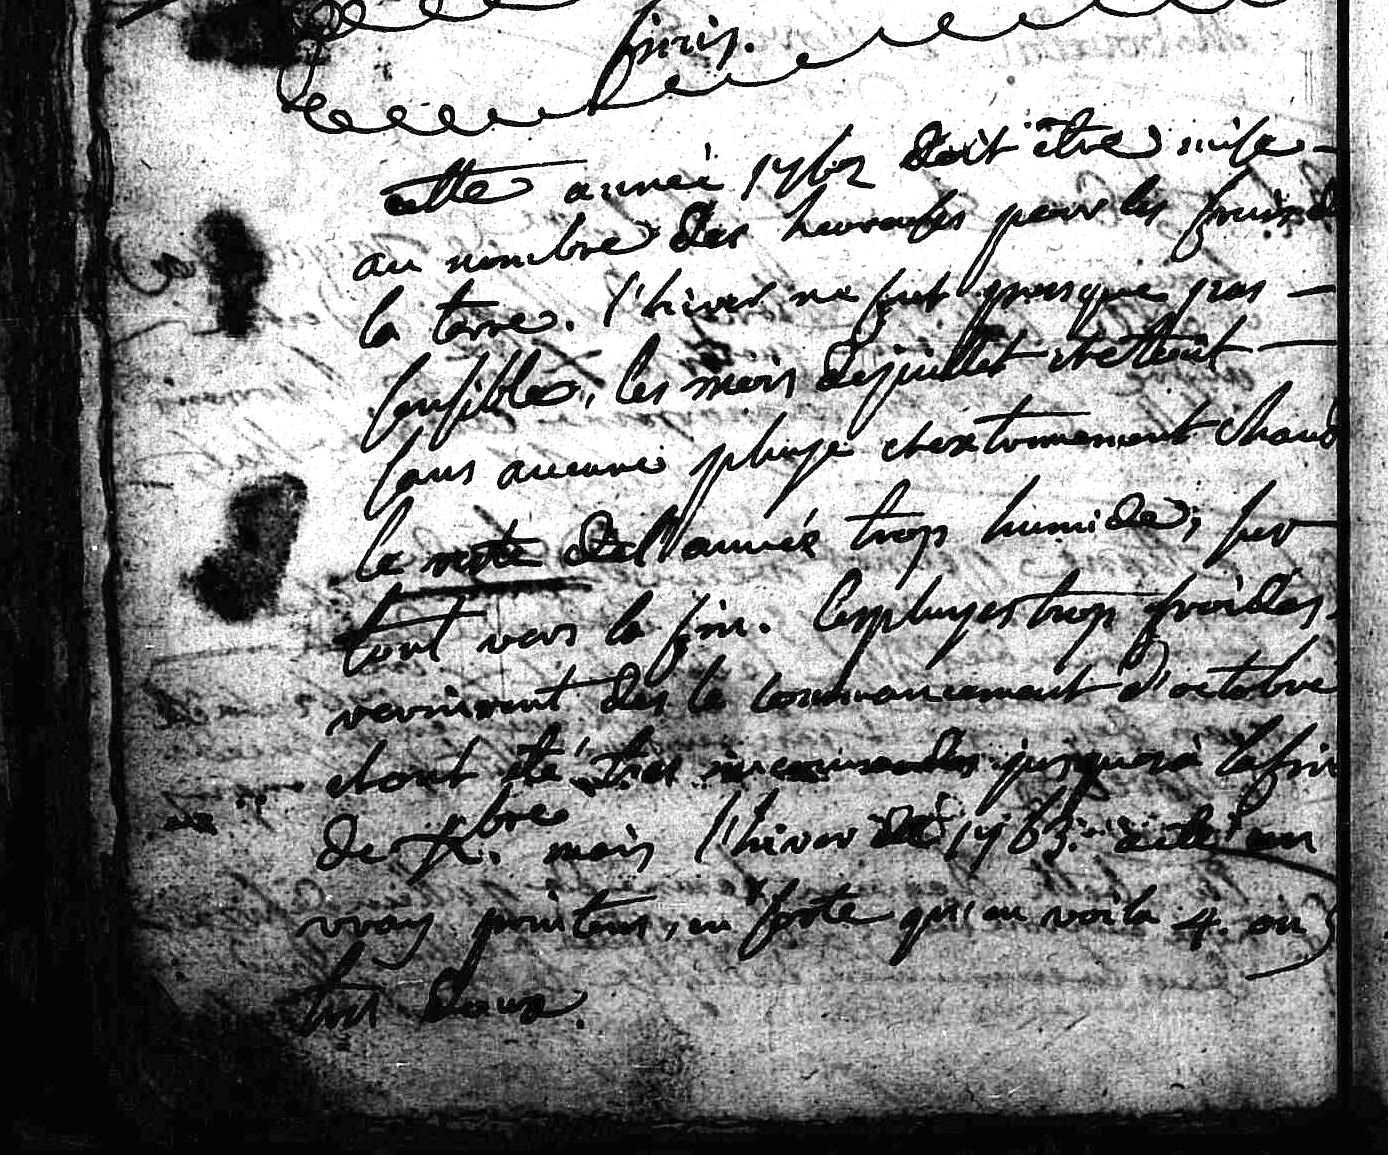 finis.
cette année 1762 doit être mise
au nombre des heureuses pour les fruis de
la terre. l'hiver ne fut presque pas
sensible, les mois de juillet et d'aout
sans aucune pluye et extrememement chaud
le reste de l'année trop humide, sur
tout vers la fin. les pluyes trop froides
vevinrent des le commancement d'octobre
et ont été tres incommodes jusques à la fin
de Xbre. mais l'hiver de 1763. a été un
vray printems, en sorte qu'en voila 4. ou 5
tres doux.